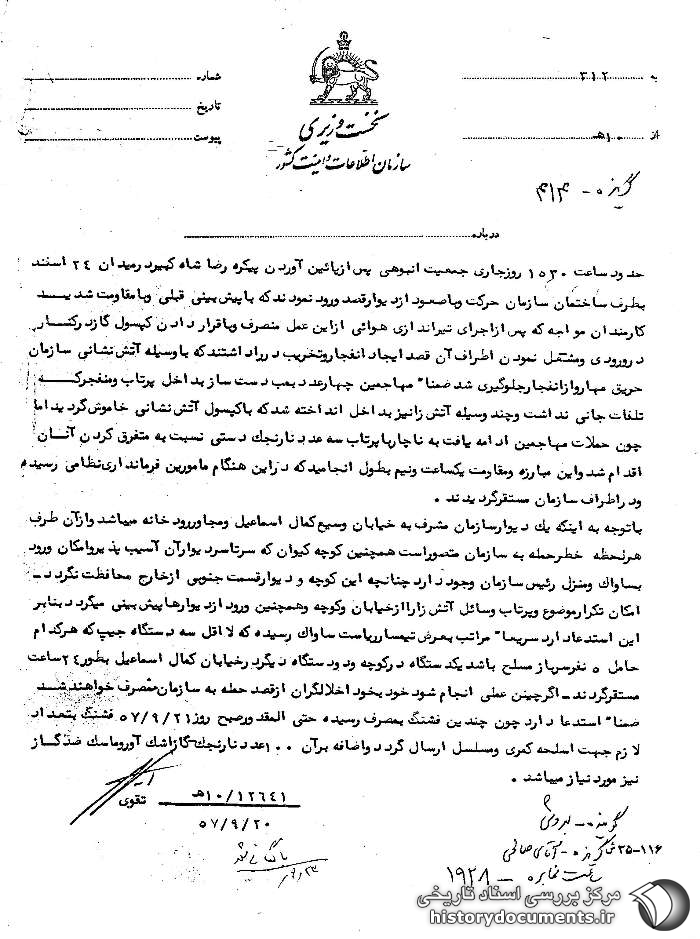 به ۳۱۲
از ۱۰هـ
شماره
تاریخ
پیوست
نخست وزیری
سازمان اطلاعات و امنیت کشور
گیرنده -
درباره
حدود ساعت ۱۵۳۰ روزجاری جمعیت انبوهی پس ازپائین آوردن پیکره رضا شاه کبیردرمیدان ۲۴ اسفند
بطرف ساختمان سازمان حرکت وباصعود ازدیوارقصد ورود نمودند که باپیش بینی قبلی وبامقاومت شدیــد
کارمندان مواجه که پس ازاجرای تیراندازی هوائی ازاین عمل منصرف وباقرار دادن کپسول گازدرکنـار
درورودی ومشتعل نمودن اطراف آن قصد ایجاد انفجاروتخریب درراداشتندکه باوسیله آتش نشانی سازمان
حریق مهاروازانفجارجلوگیری شد ضمنا" مهاجمین چهارعدد بمب دست ساز بداخل پرتاب ومنفجرکـــه
تلفات جانی نداشت وچند وسیله آتش زانیز بداخل انداخته شدکه باکپسول آتش نشانی خاموش گردیداما
چون حملات مهاجمین ادامه یافت به ناچارباپرتاب سه عدد نارنجک دستی نسبت به متفرق کردن آنــان
اقدام شد واین مبارزه ومقاومت یکساعت ونیم بطول انجامیدکه دراین هنگام مامورین فرمانداری نظامی رسیده
ودراطراف سازمان مستقرگردیدند .
باتوجه به اینکه یک دیوارسازمان مشرف به خیابان وسیع کمال اسماعیل ومجاوررودخانه میباشد وازآن طرف
هرلحظه خطرحمله به سازمان متصوراست همچنین کوچه کیوان که سرتاسردیوارآن آسیب پذیروامکان ورود
بساواک ومنزل رئیس سازمان وجود دارد چنانچه این کوچه و دیوارقسمت جنوبی ازخارج محافظت نگردد ـ
امکان تکرارموضوع وپرتاب وسائل آتش زاراازخیابان وکوچه وهمچنین ورود ازدیوارهاپیش بینی میگردد بنابر
این استدعادارد سریعا" مراتب بعرض تیمسارریاست ساواک رسیده که لااقل سه دستگاه جیپ که هرکدام
حامل ۵ نفرسرباز مسلح باشد یکدستگاه درکوچه ودودستگاه دیگردرخیابان کمال اسماعیل بطور۲۴ساعت
مستقرگردند ـ اگرچنین عملی انجام شود خودبخود اخلالگران ازقصد حمله به سازمان منصرف خواهندشــد
ضمنا" استدعا دارد چون چندین فشنگ بمصرف رسیده حتی المقدورصبح روز ۵۷/۹/۲۱ فشنگ بتعداد
لازم جهت اسلحه کمری ومسلسل ارسال گردد واضافه برآن ۱۰۰عدد نارنجک گازاشک آوروماسک ضدگـاز
نیز مورد نیاز میباشد .
تقوی
۱۰/۱۲۶۴۱هـ
۵۷/۹/۲۰
گیرنده -
۳۵-۱۱۶
گیرنده - آقای صالحی
ساعت مخابره - ۱۹۲۸
مرکز بررسی اسناد تاریخی
historydocuments.ir